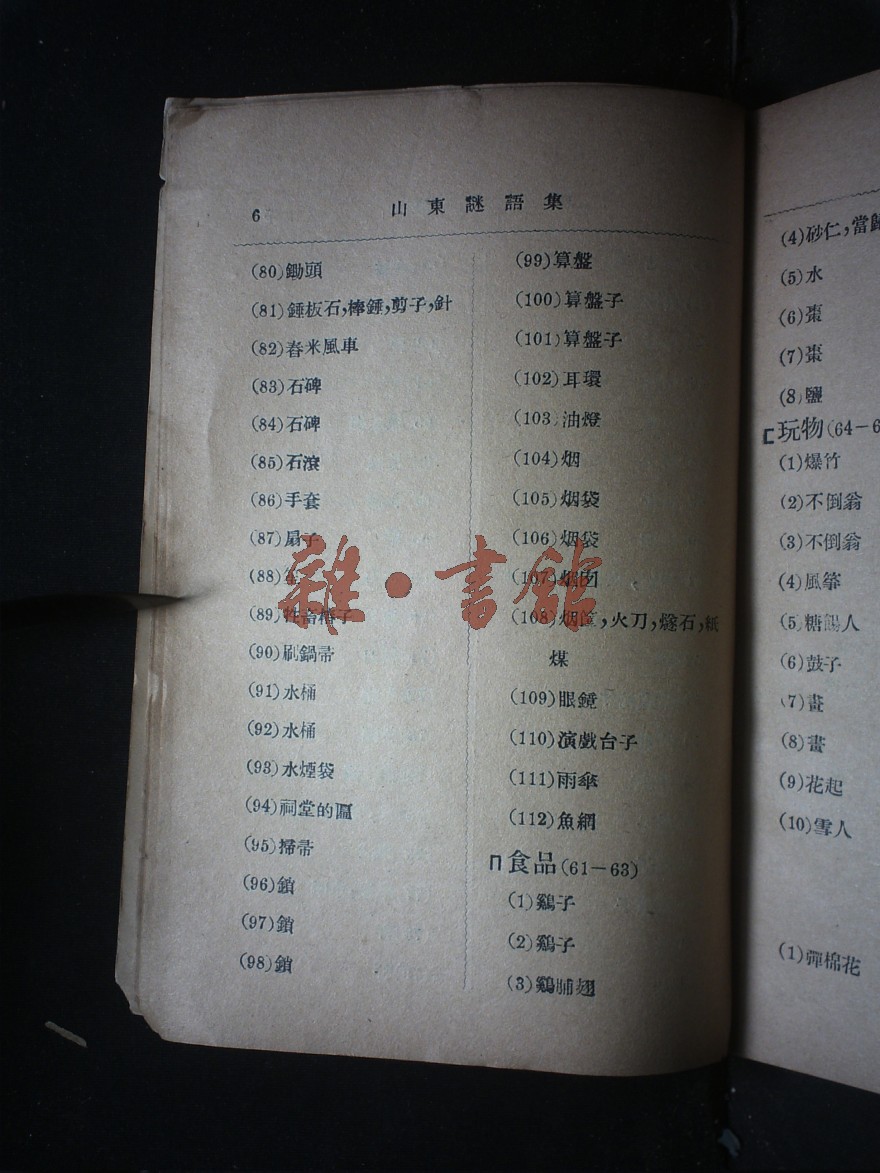 6
山東謎語集
(80)鋤頭
(81)錘板石,棒錘,剪子,針
(82)舂米風車
(83)石碑
(84)石碑
(85)石滾
(86)手套
(87)扇子
(88)
(89)牲畜槽子
(90)刷鍋帚
(91)水桶
(92)水桶
(93)水煙袋
(94)祠堂的匾
(95)掃帚
(96)鎖
(97)鎖
(98)鎖
(99)算盤
(100)算盤子
(101)算盤子
(102)耳環
(103)油燈
(104)烟
(105)烟袋
(106)烟袋
(107)烟囱
(108)烟,火刀,燧石,紙
煤
(109)眼鏡
(110)演戲台子
(111)雨傘
(112)魚網
ㄇ食品(61-63)
(1)鷄子
(2)鷄子
(3)鷄脯翅
(4)砂仁,當歸
(5)水
(6)棗
(7)棗
(8)鹽
ㄈ玩物(64-6
(1)爆竹
(2)不倒翁
(3)不倒翁
(4)風箏
(5)糖餳人
(6)鼓子
(7)畫
(8)畫
(9)花起
(10)雪人
(1)彈棉花
雜·書館